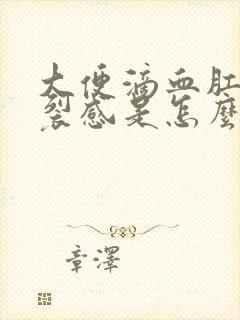 大便滴血肛
裂感是怎麼
章澤